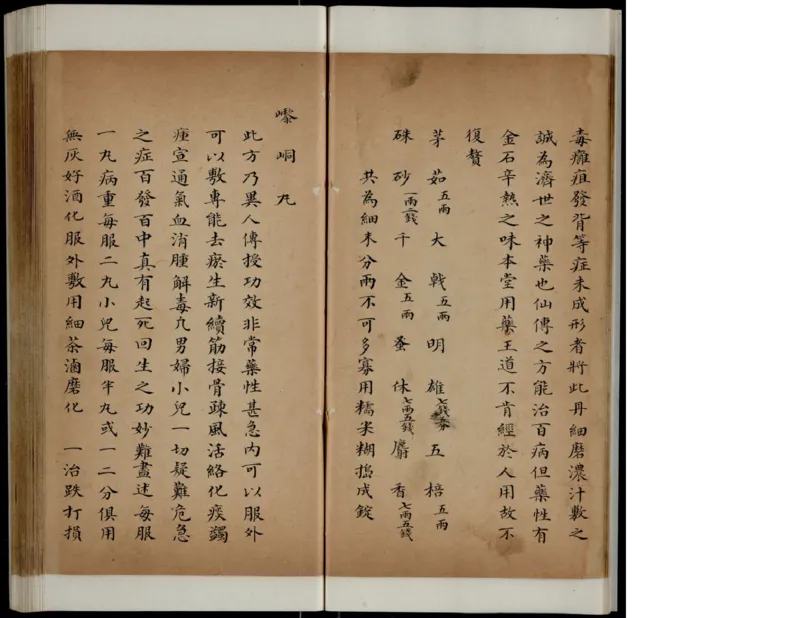 毒癰疽發背等症未成形者將此丹細磨濃汁敷之
誠為濟世之神藥也仙傳之方能治百病但藥性有
金石辛熱之味本堂用藥王道不肯經於人用故不
復贅
茅茹五兩大戟五兩明雄七錢五棓五兩
硃砂一兩二錢千金五兩蚤休七兩五錢麝香七兩五錢
共為細末分兩不可多寡用糯米糊搗成錠
嚟峒丸
此方乃異人傳授功效非常藥性甚急內可以服外
可以敷專能去瘀生新續筋接骨疎風活絡化痰蠲
痙宣通氣血消腫解毒凡男婦小兒一切疑難危急
之症百發百中真有起死回生之功妙難盡述每服
一丸病重每服二丸小兒每服半丸或一二分俱用
無灰好酒化服外敷用細茶滷磨化 一治跌打損